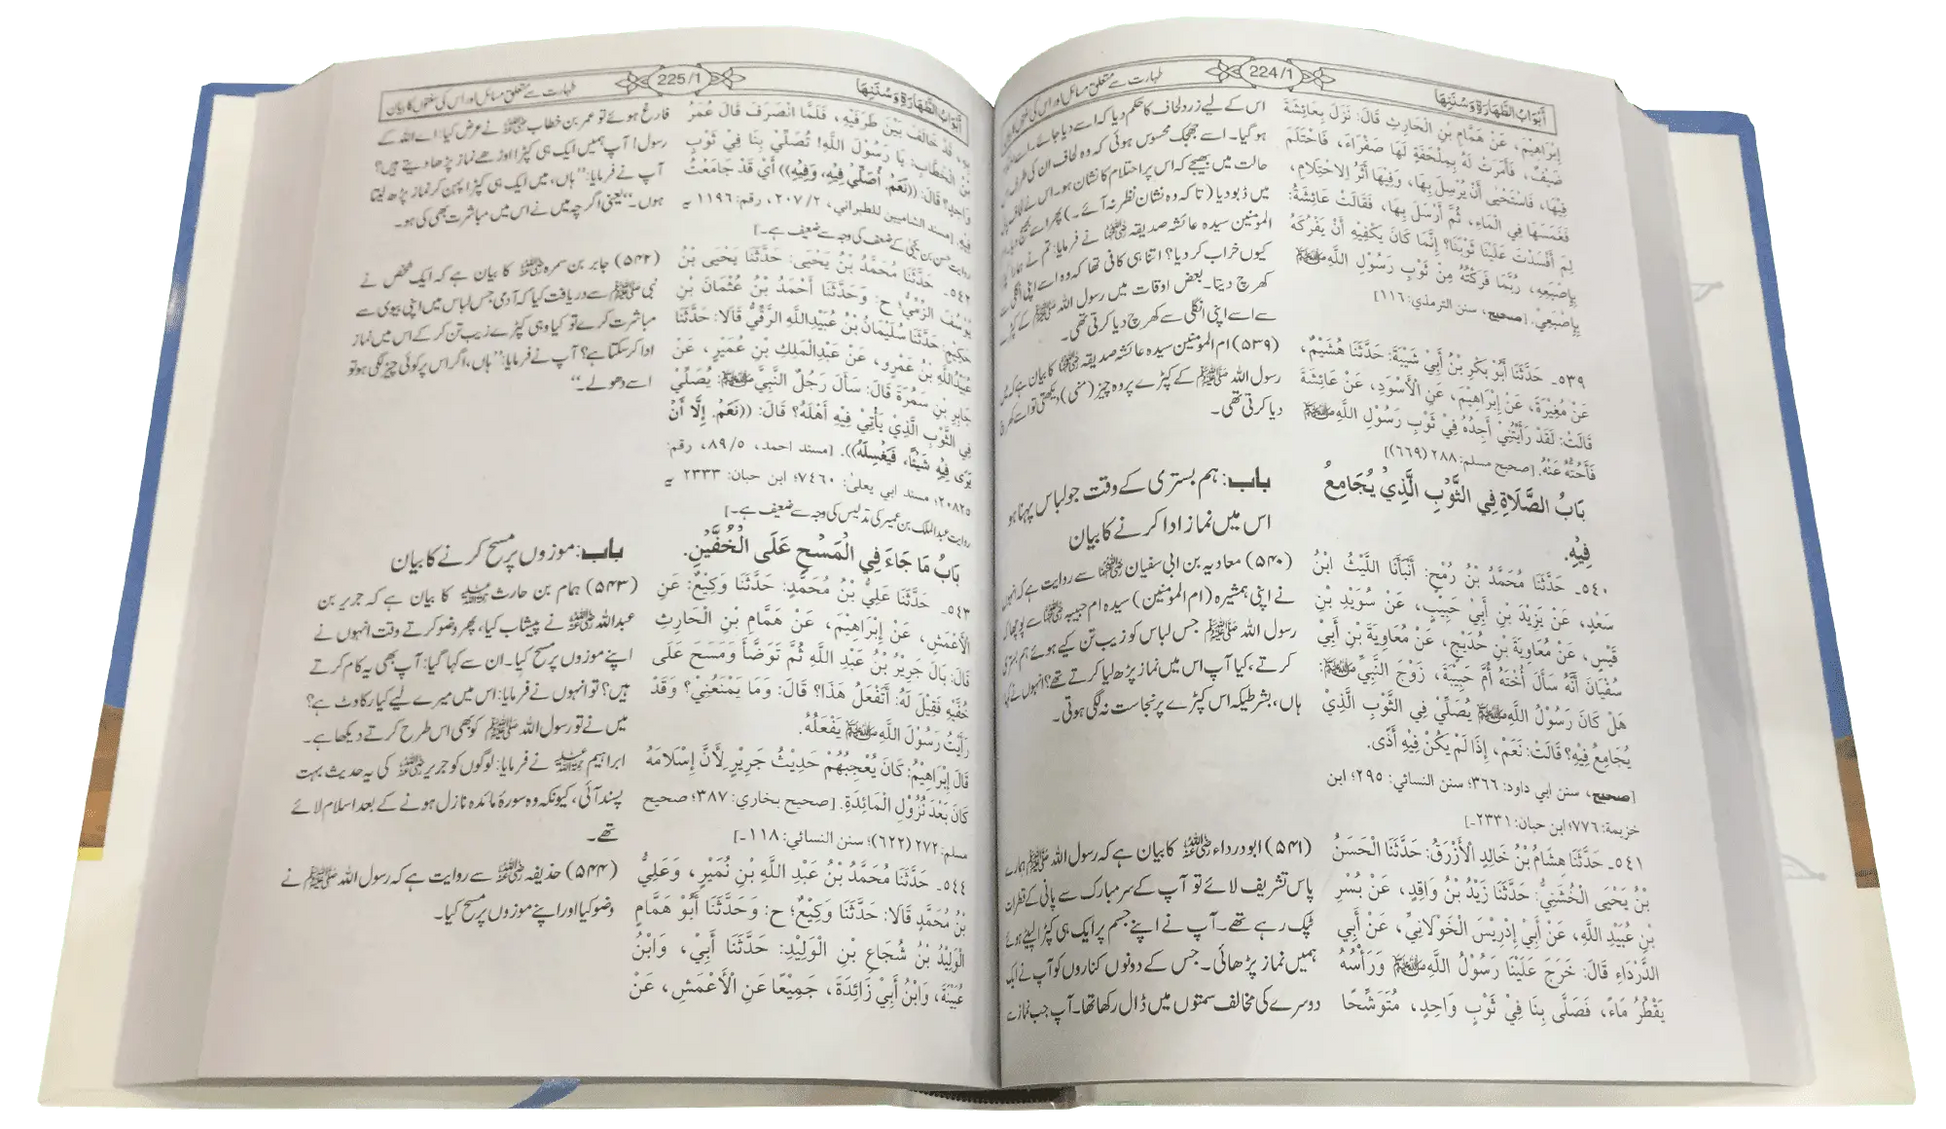 أَبْوَابُ الطَّهَارَةِ وَسُنَنِهَا
224/1
طہارت سے متعلق مسائل اور اس کی سنتوں کا بیان
إِبْرَاهِيْمَ، عَنْ هَمَّامِ بْنِ الْحَارِثِ قَالَ: نَزَلَ بِعَائِشَةَ
ضَيْفٌ، فَأَمَرَتْ لَهُ بِمِلْحَفَةٍ لَهَا صَفْرَاءَ، فَاحْتَلَمَ
فِيْهَا، فَاسْتَحْيٰى أَنْ يُرْسِلَ بِهَا، وَفِيْهَا أَثَرُ الِاحْتِلَامِ،
فَغَمَسَهَا فِي الْمَاءِ، ثُمَّ أَرْسَلَ بِهَا، فَقَالَتْ عَائِشَةُ:
لِمَ أَفْسَدْتَ عَلَيْنَا ثَوْبَنَا؟ إِنَّمَا كَانَ يَكْفِيْهِ أَنْ يَفْرُكَهُ
بِإِصْبَعِهِ، رُبَّمَا فَرَكْتُهُ مِنْ ثَوْبِ رَسُوْلِ اللّٰهِ ﷺ
بِإِصْبَعِيْ. [صحيح، سنن الترمذي: ١١٦]
٥٣٩۔ حَدَّثَنَا أَبُوْ بَكْرِ بْنُ أَبِيْ شَيْبَةَ: حَدَّثَنَا هُشَيْمٌ،
عَنْ مُغِيْرَةَ، عَنْ إِبْرَاهِيْمَ، عَنِ الْأَسْوَدِ، عَنْ عَائِشَةَ
قَالَتْ: لَقَدْ رَأَيْتُنِيْ أَجِدُهُ فِيْ ثَوْبِ رَسُوْلِ اللّٰهِ ﷺ
فَأَحُتُّهُ عَنْهُ. [صحيح مسلم: ٢٨٨ (٦٦٩)]
بَابُ الصَّلَاةِ فِي الثَّوْبِ الَّذِيْ يُجَامِعُ
فِيْهِ.
٥٤٠۔ حَدَّثَنَا مُحَمَّدُ بْنُ رُمْحٍ: أَنْبَأَنَا اللَّيْثُ ابْنُ
سَعْدٍ، عَنْ يَزِيْدَ بْنِ أَبِيْ حَبِيْبٍ، عَنْ سُوَيْدِ بْنِ
قَيْسٍ، عَنْ مُعَاوِيَةَ بْنِ حُدَيْجٍ، عَنْ مُعَاوِيَةَ بْنِ أَبِيْ
سُفْيَانَ أَنَّهُ سَأَلَ أُخْتَهُ أُمَّ حَبِيْبَةَ، زَوْجَ النَّبِيِّ ﷺ:
هَلْ كَانَ رَسُوْلُ اللّٰهِ ﷺ يُصَلِّيْ فِي الثَّوْبِ الَّذِيْ
يُجَامِعُ فِيْهِ؟ قَالَتْ: نَعَمْ، إِذَا لَمْ يَكُنْ فِيْهِ أَذًى.
[صحيح، سنن ابي داود: ٣٦٦؛ سنن النسائي: ٢٩٥؛ ابن
خزيمة: ٧٧٦؛ ابن حبان: ٢٣٣١۔]
٥٤١۔ حَدَّثَنَا هِشَامُ بْنُ خَالِدٍ الْأَزْرَقُ: حَدَّثَنَا الْحَسَنُ
بْنُ يَحْيَى الْخُشَنِيُّ: حَدَّثَنَا زَيْدُ بْنُ وَاقِدٍ، عَنْ بُسْرِ
بْنِ عُبَيْدِ اللّٰهِ، عَنْ أَبِيْ إِدْرِيْسَ الْخَوْلَانِيِّ، عَنْ أَبِي
الدَّرْدَاءِ قَالَ: خَرَجَ عَلَيْنَا رَسُوْلُ اللّٰهِ ﷺ وَرَأْسُهُ
يَقْطُرُ مَاءً، فَصَلّٰى بِنَا فِيْ ثَوْبٍ وَاحِدٍ، مُتَوَشِّحًا
اس کے لیے زرد لحاف کا حکم دیا کہ اسے دیا جائے۔ اسے
ہو گیا۔ اسے جھجک محسوس ہوئی کہ وہ لحاف ان کی طرف اس
حالت میں بھیجے کہ اس پر احتلام کا نشان ہو۔ اس نے
میں ڈبو دیا (تا کہ وہ نشان نظر نہ آئے۔) پھر اسے بھیج دیا
المومنین سیدہ عائشہ صدیقہ رضی اللہ عنہا نے فرمایا: تم نے ہمارا
کیوں خراب کر دیا؟ اتنا ہی کافی تھا کہ وہ اسے اپنی انگلی سے
کھرچ دیتا۔ بعض اوقات میں رسول اللہ ﷺ کے کپڑے
سے اسے اپنی انگلی سے کھرچ دیا کرتی تھی۔
(۵۳۹) ام المومنین سیدہ عائشہ صدیقہ رضی اللہ عنہا کا بیان ہے کہ میں
رسول اللہ ﷺ کے کپڑے پر وہ چیز (منی) دیکھتی تو اسے کھرچ
دیا کرتی تھی۔
باب: ہم بستری کے وقت جو لباس پہنا ہو
اس میں نماز ادا کرنے کا بیان
(۵۴۰) معاویہ بن ابی سفیان رضی اللہ عنہما سے روایت ہے کہ انہوں
نے اپنی ہمشیرہ (ام المومنین) سیدہ ام حبیبہ رضی اللہ عنہا سے پوچھا کہ
رسول اللہ ﷺ جس لباس کو زیب تن کیے ہوئے ہم بستری
کرتے، کیا آپ اس میں نماز پڑھ لیا کرتے تھے؟ انہوں نے کہا:
ہاں، بشرطیکہ اس کپڑے پر نجاست نہ لگی ہوتی۔
(۵۴۱) ابو درداء رضی اللہ عنہ کا بیان ہے کہ رسول اللہ ﷺ ہمارے
پاس تشریف لائے تو آپ کے سر مبارک سے پانی کے قطرات
ٹپک رہے تھے۔ آپ نے اپنے جسم پر ایک ہی کپڑا لپیٹے ہوئے
ہمیں نماز پڑھائی۔ جس کے دونوں کناروں کو آپ نے ایک
دوسرے کی مخالف سمتوں میں ڈال رکھا تھا۔ آپ جب نماز سے
أَبْوَابُ الطَّهَارَةِ وَسُنَنِهَا
225/1
طہارت سے متعلق مسائل اور اس کی سنتوں کا بیان
بِهِ، قَدْ خَالَفَ بَيْنَ طَرَفَيْهِ، فَلَمَّا انْصَرَفَ قَالَ عُمَرُ
بْنُ الْخَطَّابِ: يَا رَسُوْلَ اللّٰهِ! تُصَلِّيْ بِنَا فِيْ ثَوْبٍ
وَاحِدٍ؟ قَالَ: ((نَعَمْ. أُصَلِّيْ فِيْهِ، وَفِيْهِ)) أَيْ قَدْ جَامَعْتُ
فِيْهِ. [مسند الشاميين للطبراني، ٢/ ٢٠٧، رقم: ١١٩٦ یہ
روایت حسن بن یحییٰ کے ضعف کی وجہ سے ضعیف ہے۔]
٥٤٢۔ حَدَّثَنَا مُحَمَّدُ بْنُ يَحْيَى: حَدَّثَنَا يَحْيَى بْنُ
يُوْسُفَ الزَّمِّيُّ؛ ح: وَحَدَّثَنَا أَحْمَدُ بْنُ عُثْمَانَ بْنِ
حَكِيْمٍ: حَدَّثَنَا سُلَيْمَانُ بْنُ عُبَيْدِاللّٰهِ الرَّقِّيُّ قَالَا: حَدَّثَنَا
عُبَيْدُاللّٰهِ بْنُ عَمْرٍو، عَنْ عَبْدِالْمَلِكِ بْنِ عُمَيْرٍ، عَنْ
جَابِرِ بْنِ سَمُرَةَ قَالَ: سَأَلَ رَجُلٌ النَّبِيَّ ﷺ: يُصَلِّيْ
فِي الثَّوْبِ الَّذِيْ يَأْتِيْ فِيْهِ أَهْلَهُ؟ قَالَ: ((نَعَمْ. إِلَّا أَنْ
يَرَى فِيْهِ شَيْئًا، فَيَغْسِلَهُ)). [مسند احمد، ٥/ ٨٩، رقم:
٢٠٨٢٥؛ مسند ابي يعلىٰ: ٧٤٦٠؛ ابن حبان: ٢٣٣٣ یہ
روایت عبدالملک بن عمیر کی تدلیس کی وجہ سے ضعیف ہے۔]
بَابُ مَا جَاءَ فِي الْمَسْحِ عَلَى الْخُفَّيْنِ.
٥٤٣۔ حَدَّثَنَا عَلِيُّ بْنُ مُحَمَّدٍ: حَدَّثَنَا وَكِيْعٌ: عَنِ
الْأَعْمَشِ، عَنْ إِبْرَاهِيْمَ، عَنْ هَمَّامِ بْنِ الْحَارِثِ
قَالَ: بَالَ جَرِيْرُ بْنُ عَبْدِ اللّٰهِ ثُمَّ تَوَضَّأَ وَمَسَحَ عَلَى
خُفَّيْهِ فَقِيْلَ لَهُ: أَتَفْعَلُ هَذَا؟ قَالَ: وَمَا يَمْنَعُنِيْ؟ وَقَدْ
رَأَيْتُ رَسُوْلَ اللّٰهِ ﷺ يَفْعَلُهُ.
قَالَ إِبْرَاهِيْمُ: كَانَ يُعْجِبُهُمْ حَدِيْثُ جَرِيْرٍ لِأَنَّ إِسْلَامَهُ
كَانَ بَعْدَ نُزُوْلِ الْمَائِدَةِ. [صحيح بخاري: ٣٨٧؛ صحيح
مسلم: ٢٧٢ (٦٢٢)؛ سنن النسائي: ١١٨۔]
٥٤٤۔ حَدَّثَنَا مُحَمَّدُ بْنُ عَبْدِ اللّٰهِ بْنِ نُمَيْرٍ، وَعَلِيُّ
بْنُ مُحَمَّدٍ قَالَا: حَدَّثَنَا وَكِيْعٌ؛ ح: وَحَدَّثَنَا أَبُوْ هَمَّامٍ
الْوَلِيْدُ بْنُ شُجَاعِ بْنِ الْوَلِيْدِ: حَدَّثَنَا أَبِيْ، وَابْنُ
عُيَيْنَةَ، وَابْنُ أَبِيْ زَائِدَةَ، جَمِيْعًا عَنِ الْأَعْمَشِ، عَنْ
فارغ ہوئے تو عمر بن خطاب رضی اللہ عنہ نے عرض کیا: اے اللہ کے
رسول! آپ ہمیں ایک ہی کپڑا اوڑھے نماز پڑھا دیتے ہیں؟
آپ نے فرمایا: ”ہاں، میں ایک ہی کپڑا پہن کر نماز پڑھ لیتا
ہوں۔“ یعنی اگرچہ میں نے اس میں مباشرت بھی کی ہو۔
(۵۴۲) جابر بن سمرہ رضی اللہ عنہ کا بیان ہے کہ ایک شخص نے
نبی ﷺ سے دریافت کیا کہ آدمی جس لباس میں اپنی بیوی سے
مباشرت کرے تو کیا وہی کپڑے زیب تن کر کے اس میں نماز
ادا کر سکتا ہے؟ آپ نے فرمایا: ”ہاں، اگر اس پر کوئی چیز لگی ہو تو
اسے دھو لے۔“
باب: موزوں پر مسح کرنے کا بیان
(۵۴۳) ہمام بن حارث رحمہ اللہ کا بیان ہے کہ جریر بن
عبداللہ رضی اللہ عنہ نے پیشاب کیا، پھر وضو کرتے وقت انہوں نے
اپنے موزوں پر مسح کیا۔ ان سے کہا گیا: آپ بھی یہ کام کرتے
ہیں؟ تو انہوں نے فرمایا: اس میں میرے لیے کیا رکاوٹ ہے؟
میں نے تو رسول اللہ ﷺ کو بھی اس طرح کرتے دیکھا ہے۔
ابراہیم رحمہ اللہ نے فرمایا: لوگوں کو جریر رضی اللہ عنہ کی یہ حدیث بہت
پسند آئی، کیونکہ وہ سورۂ مائدہ نازل ہونے کے بعد اسلام لائے
تھے۔
(۵۴۴) حذیفہ رضی اللہ عنہ سے روایت ہے کہ رسول اللہ ﷺ نے
وضو کیا اور اپنے موزوں پر مسح کیا۔